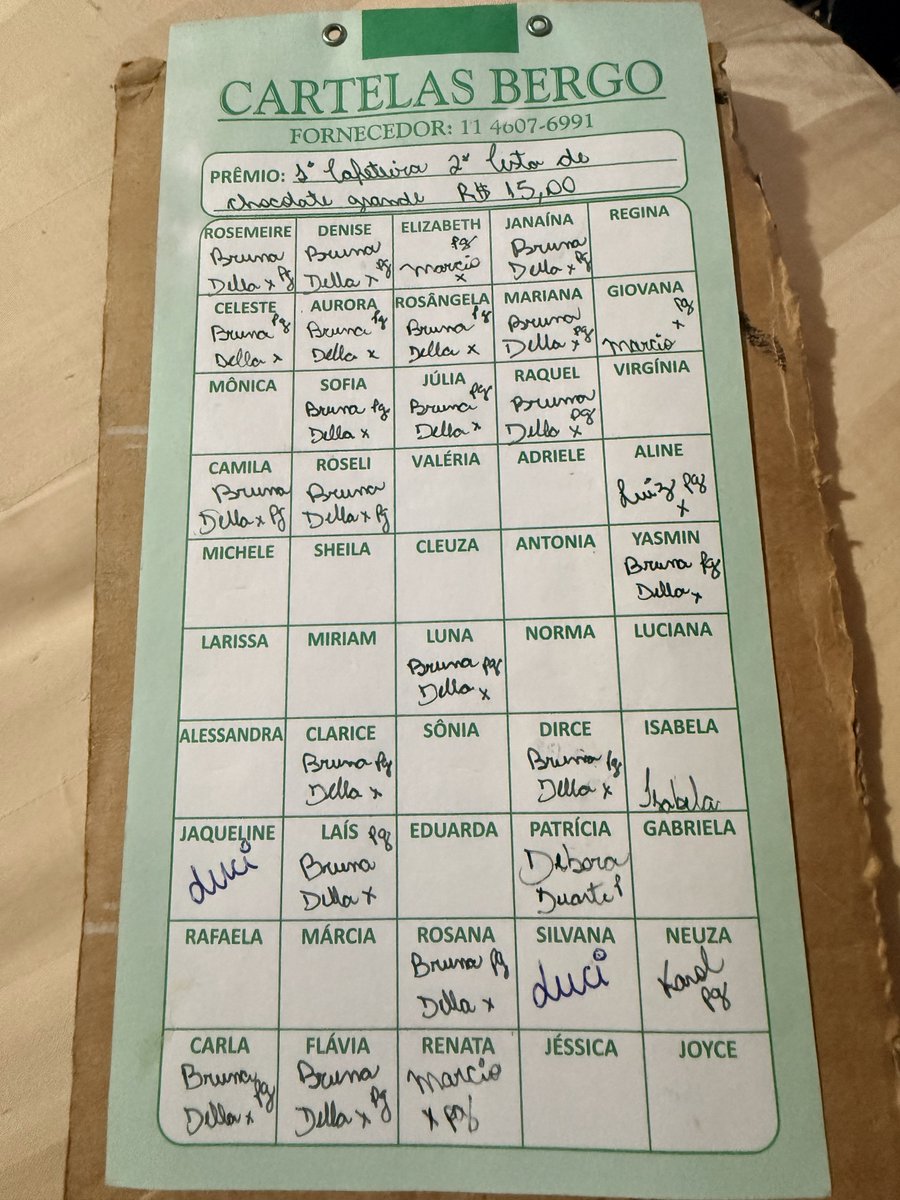 CARTELAS BERGO
FORNECEDOR: 11 4607-6991
PRÊMIO: 1º Cafeteira 2º Cesta de
chocolate grande R$ 15,00
ROSEMEIRE DENISE ELIZABETH JANAÍNA REGINA
Bruna Bruna pg Bruna
Della x Pg Della x pg Marcio x Della x pg
CELESTE AURORA ROSÂNGELA MARIANA GIOVANA
Bruna pg Bruna pg Bruna pg Bruna pg x
Della x Della x Della x Della x pg Marcio
MÔNICA SOFIA JÚLIA RAQUEL VIRGÍNIA
Bruna pg Bruna pg Bruna
Della x Della x Della x pg
CAMILA ROSELI VALÉRIA ADRIELE ALINE
Bruna Bruna Luiz pg
Della x Pg Della x Pg x
MICHELE SHEILA CLEUZA ANTONIA YASMIN
Bruna pg
Della x
LARISSA MIRIAM LUNA NORMA LUCIANA
Bruna pg
Della x
ALESSANDRA CLARICE SÔNIA DIRCE ISABELA
Bruna pg Bruna pg
Della x Della x Isabela
JAQUELINE LAÍS pg EDUARDA PATRÍCIA GABRIELA
duci Bruna Debora
Della x Duarte
RAFAELA MÁRCIA ROSANA SILVANA NEUZA
Bruna pg duci Karol
Della x pg
CARLA FLÁVIA RENATA JÉSSICA JOYCE
Bruna pg Bruna Marcio
Della x Della x Pg x pg